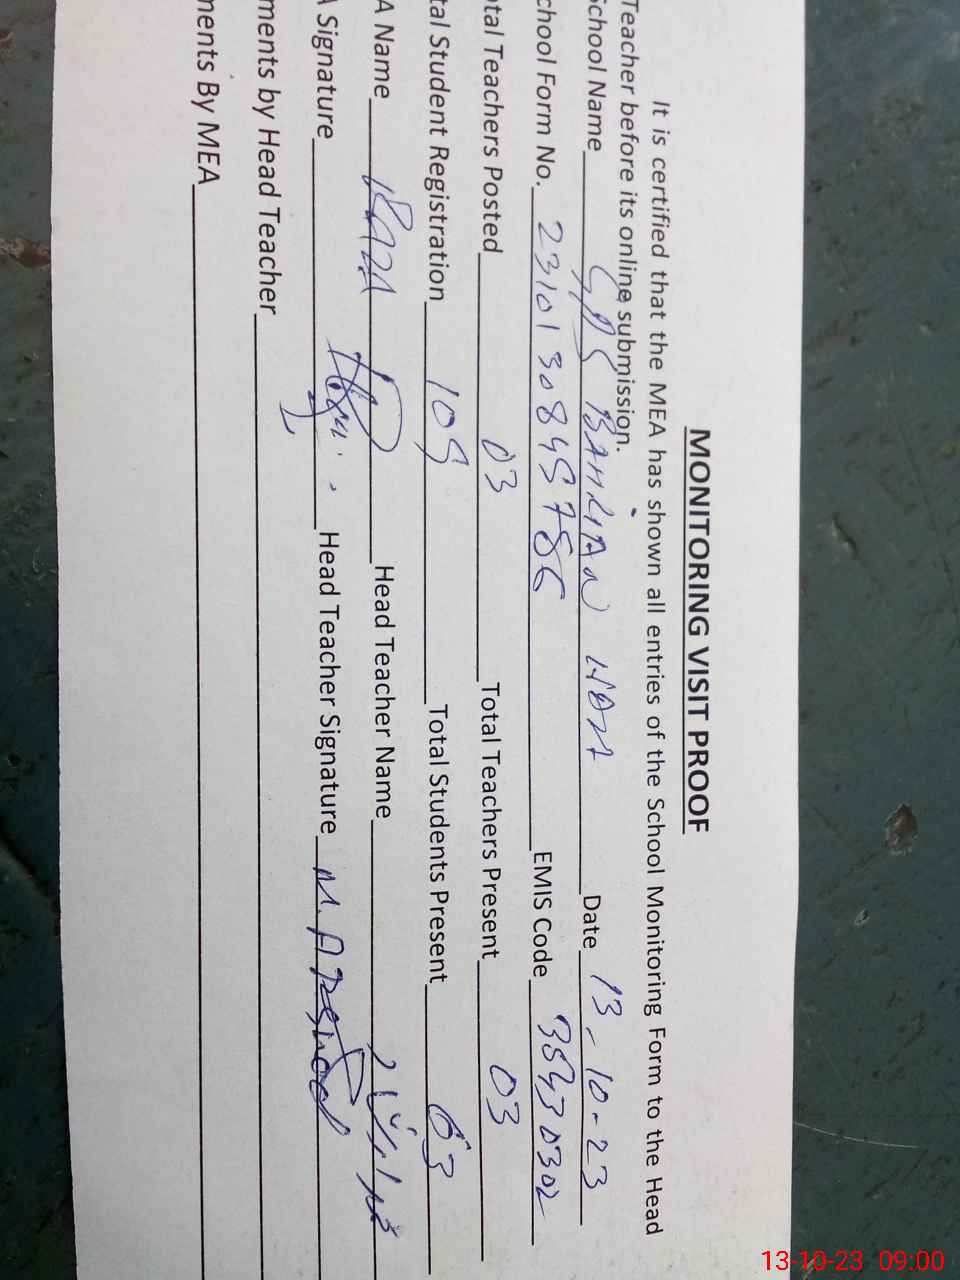 MONITORING VISIT PROOF
It is certified that the MEA has shown all entries of the School Monitoring Form to the Head
Teacher before its online submission.
School Name GPS BAHLIAN Date 13-10-23
chool Form No. EMIS Code
otal Teachers Posted 03 Total Teachers Present 03
tal Student Registration 105 Total Students Present 63
A Name Head Teacher Name
A Signature Head Teacher Signature M. Arshad
ments by Head Teacher
ments By MEA
13-10-23 09:00